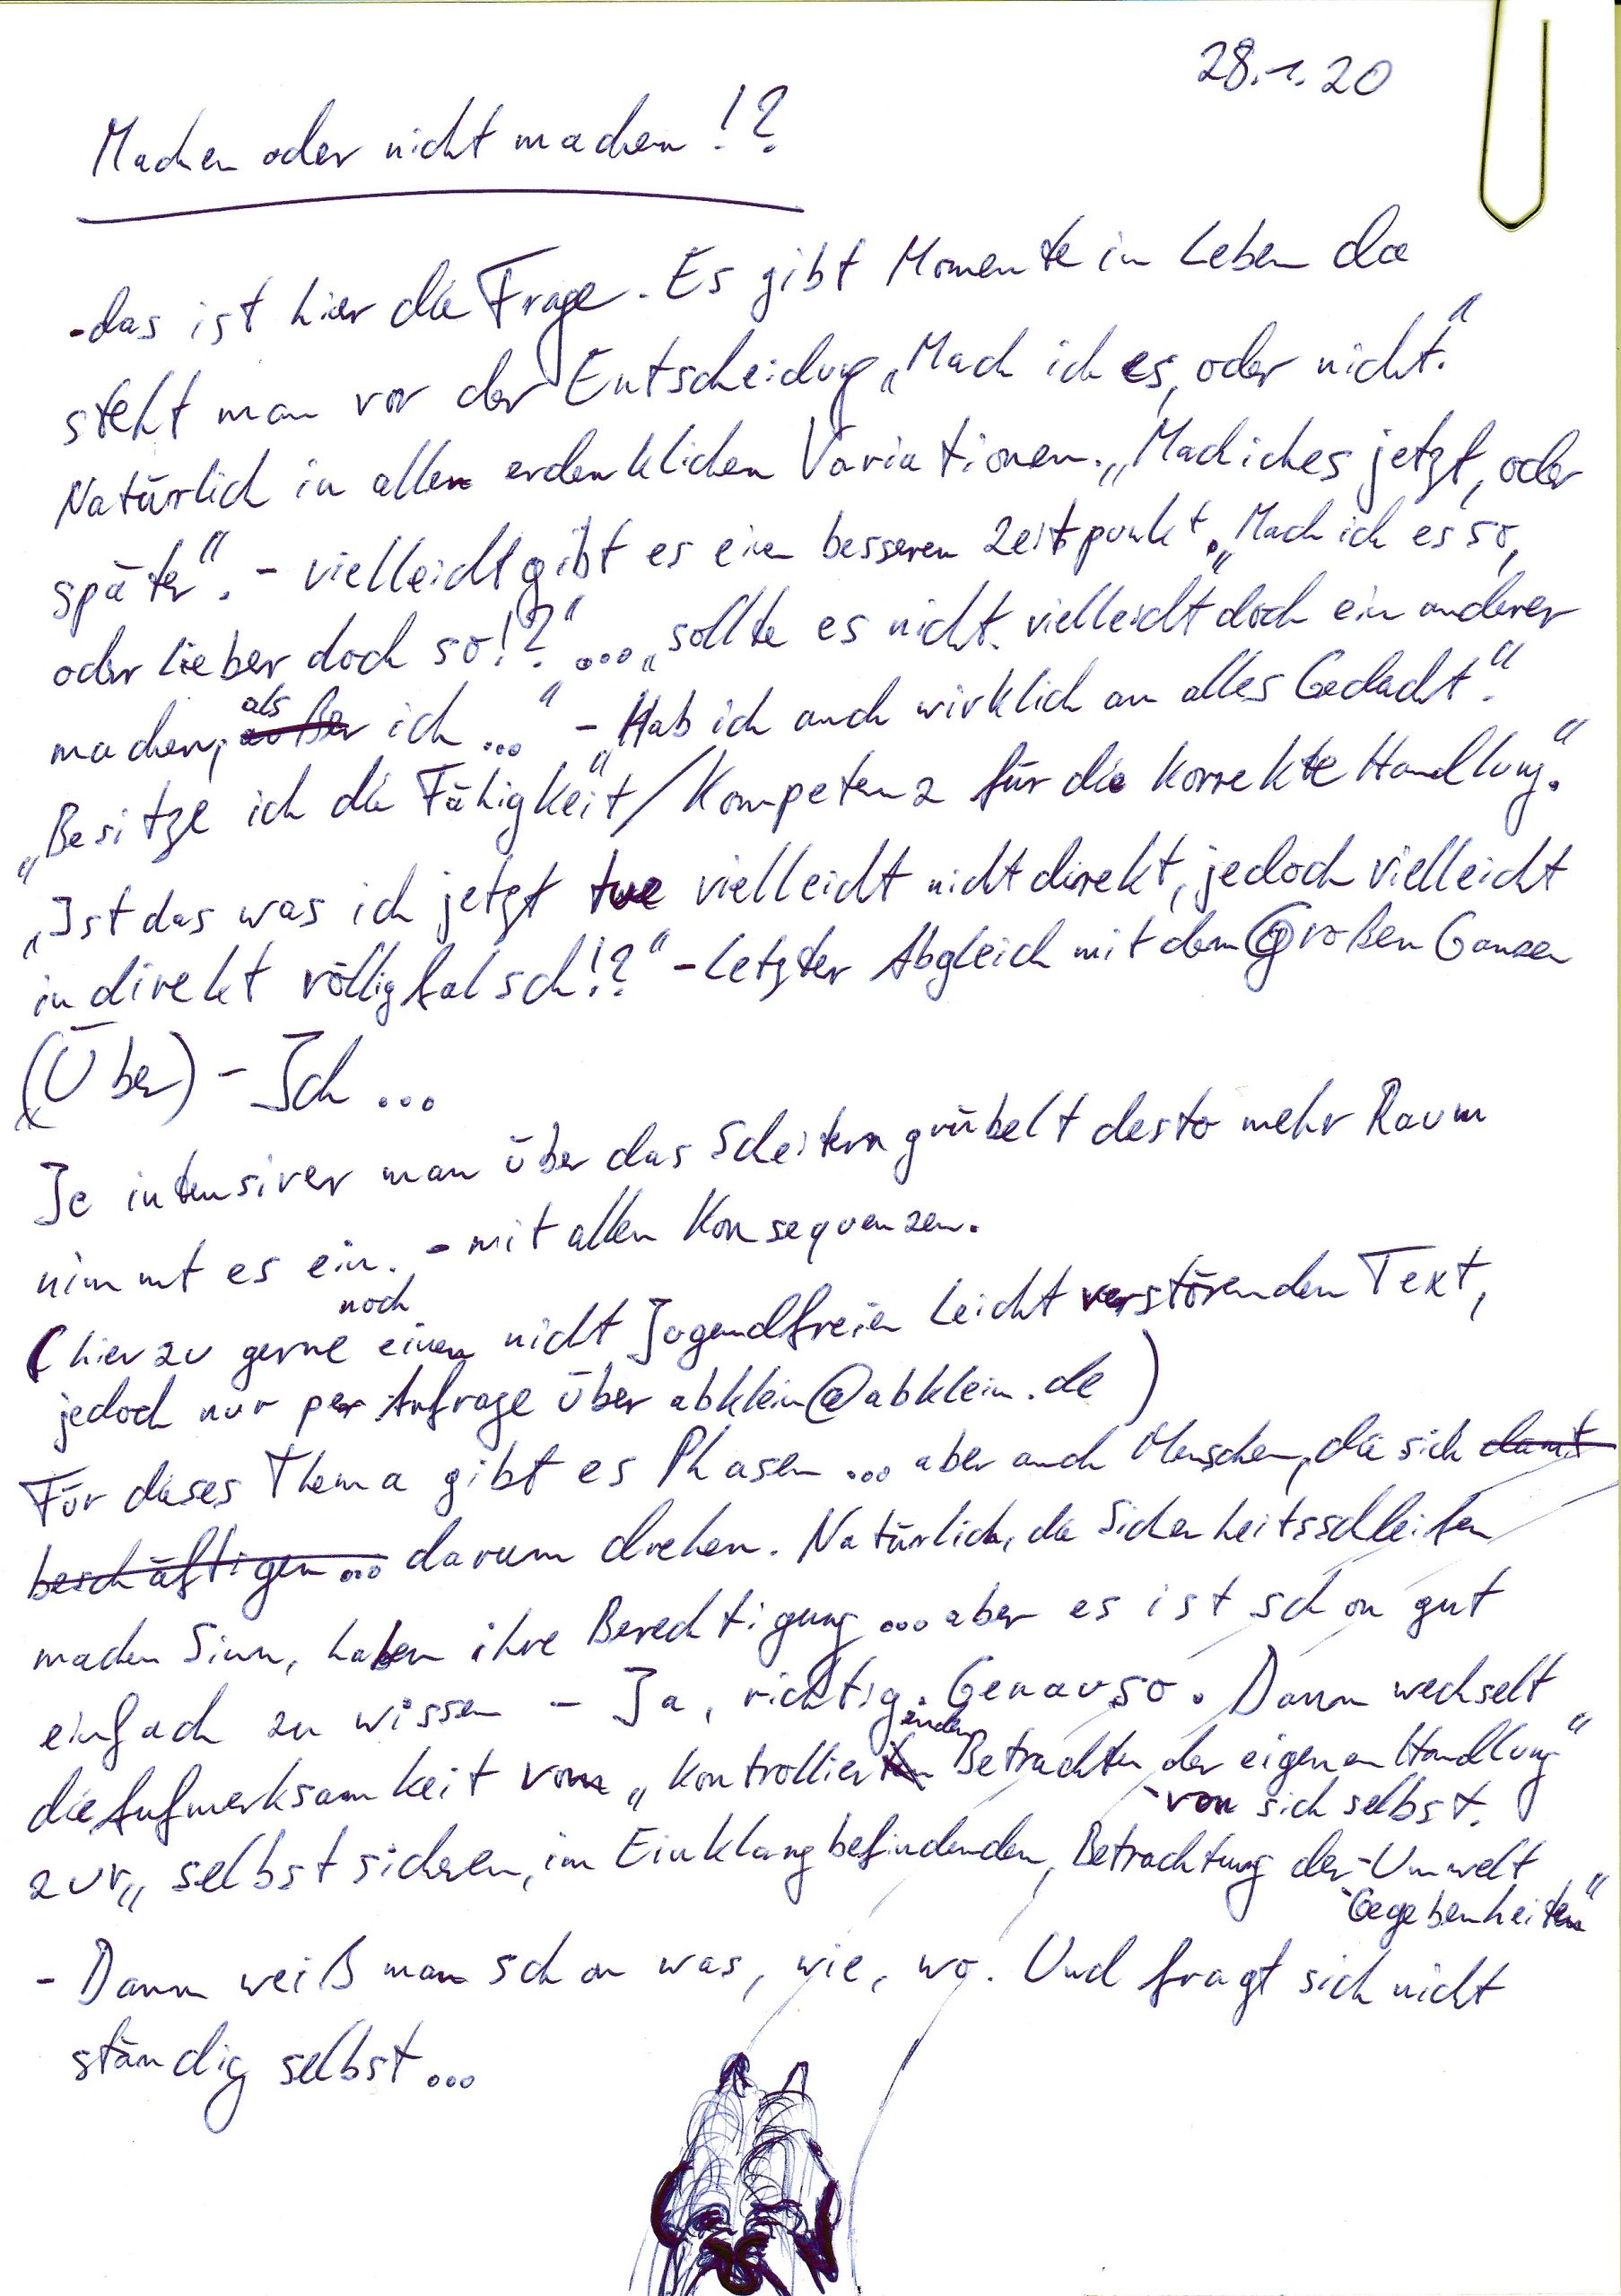 28.1.20
Machen oder nicht machen!?
-das ist hier die Frage. Es gibt Momente im Leben da
steht man vor der Entscheidung „Mach ich es, oder nicht."
Natürlich in allen erdenklichen Variationen. „Mach ich es jetzt, oder
später". - vielleicht gibt es ein besseren Zeitpunkt. „Mach ich es so,
oder lieber doch so!?" ... „sollte es nicht vielleicht doch ein anderer
machen, als außer ich..." - „Hab ich auch wirklich an alles Gedacht".
„Besitze ich die Fähigkeit/Kompetenz für die korrekte Handlung".
„Ist das was ich jetzt tue vielleicht nicht direkt, jedoch vielleicht
indirekt völlig falsch!?" - letzter Abgleich mit dem Großen Ganzen
(Über) - Ich ...
Je intensiver man über das Scheitern grübelt desto mehr Raum
nimmt es ein. - mit allen Konsequenzen.
(hierzu gerne noch einen nicht Jugendfreien leicht verstörenden Text,
jedoch nur per Anfrage über abklein@abklein.de)
Für dieses Thema gibt es Phasen ... aber auch Menschen, die sich damit
beschäftigen... darum drehen. Natürlich, die Sicherheitsschleifen
machen Sinn, haben ihre Berechtigung ... aber es ist schon gut
einfach zu wissen - Ja, richtig. Genauso. Dann wechselt
die Aufmerksamkeit vom „kontrollierenden Betrachten der eigenen Handlung"
- von sich selbst.
zur „selbstsicheren, im Einklang befindenden, Betrachtung der -Umwelt
-Gegebenheiten"
- Dann weiß man schon was, wie, wo. Und fragt sich nicht
ständig selbst...